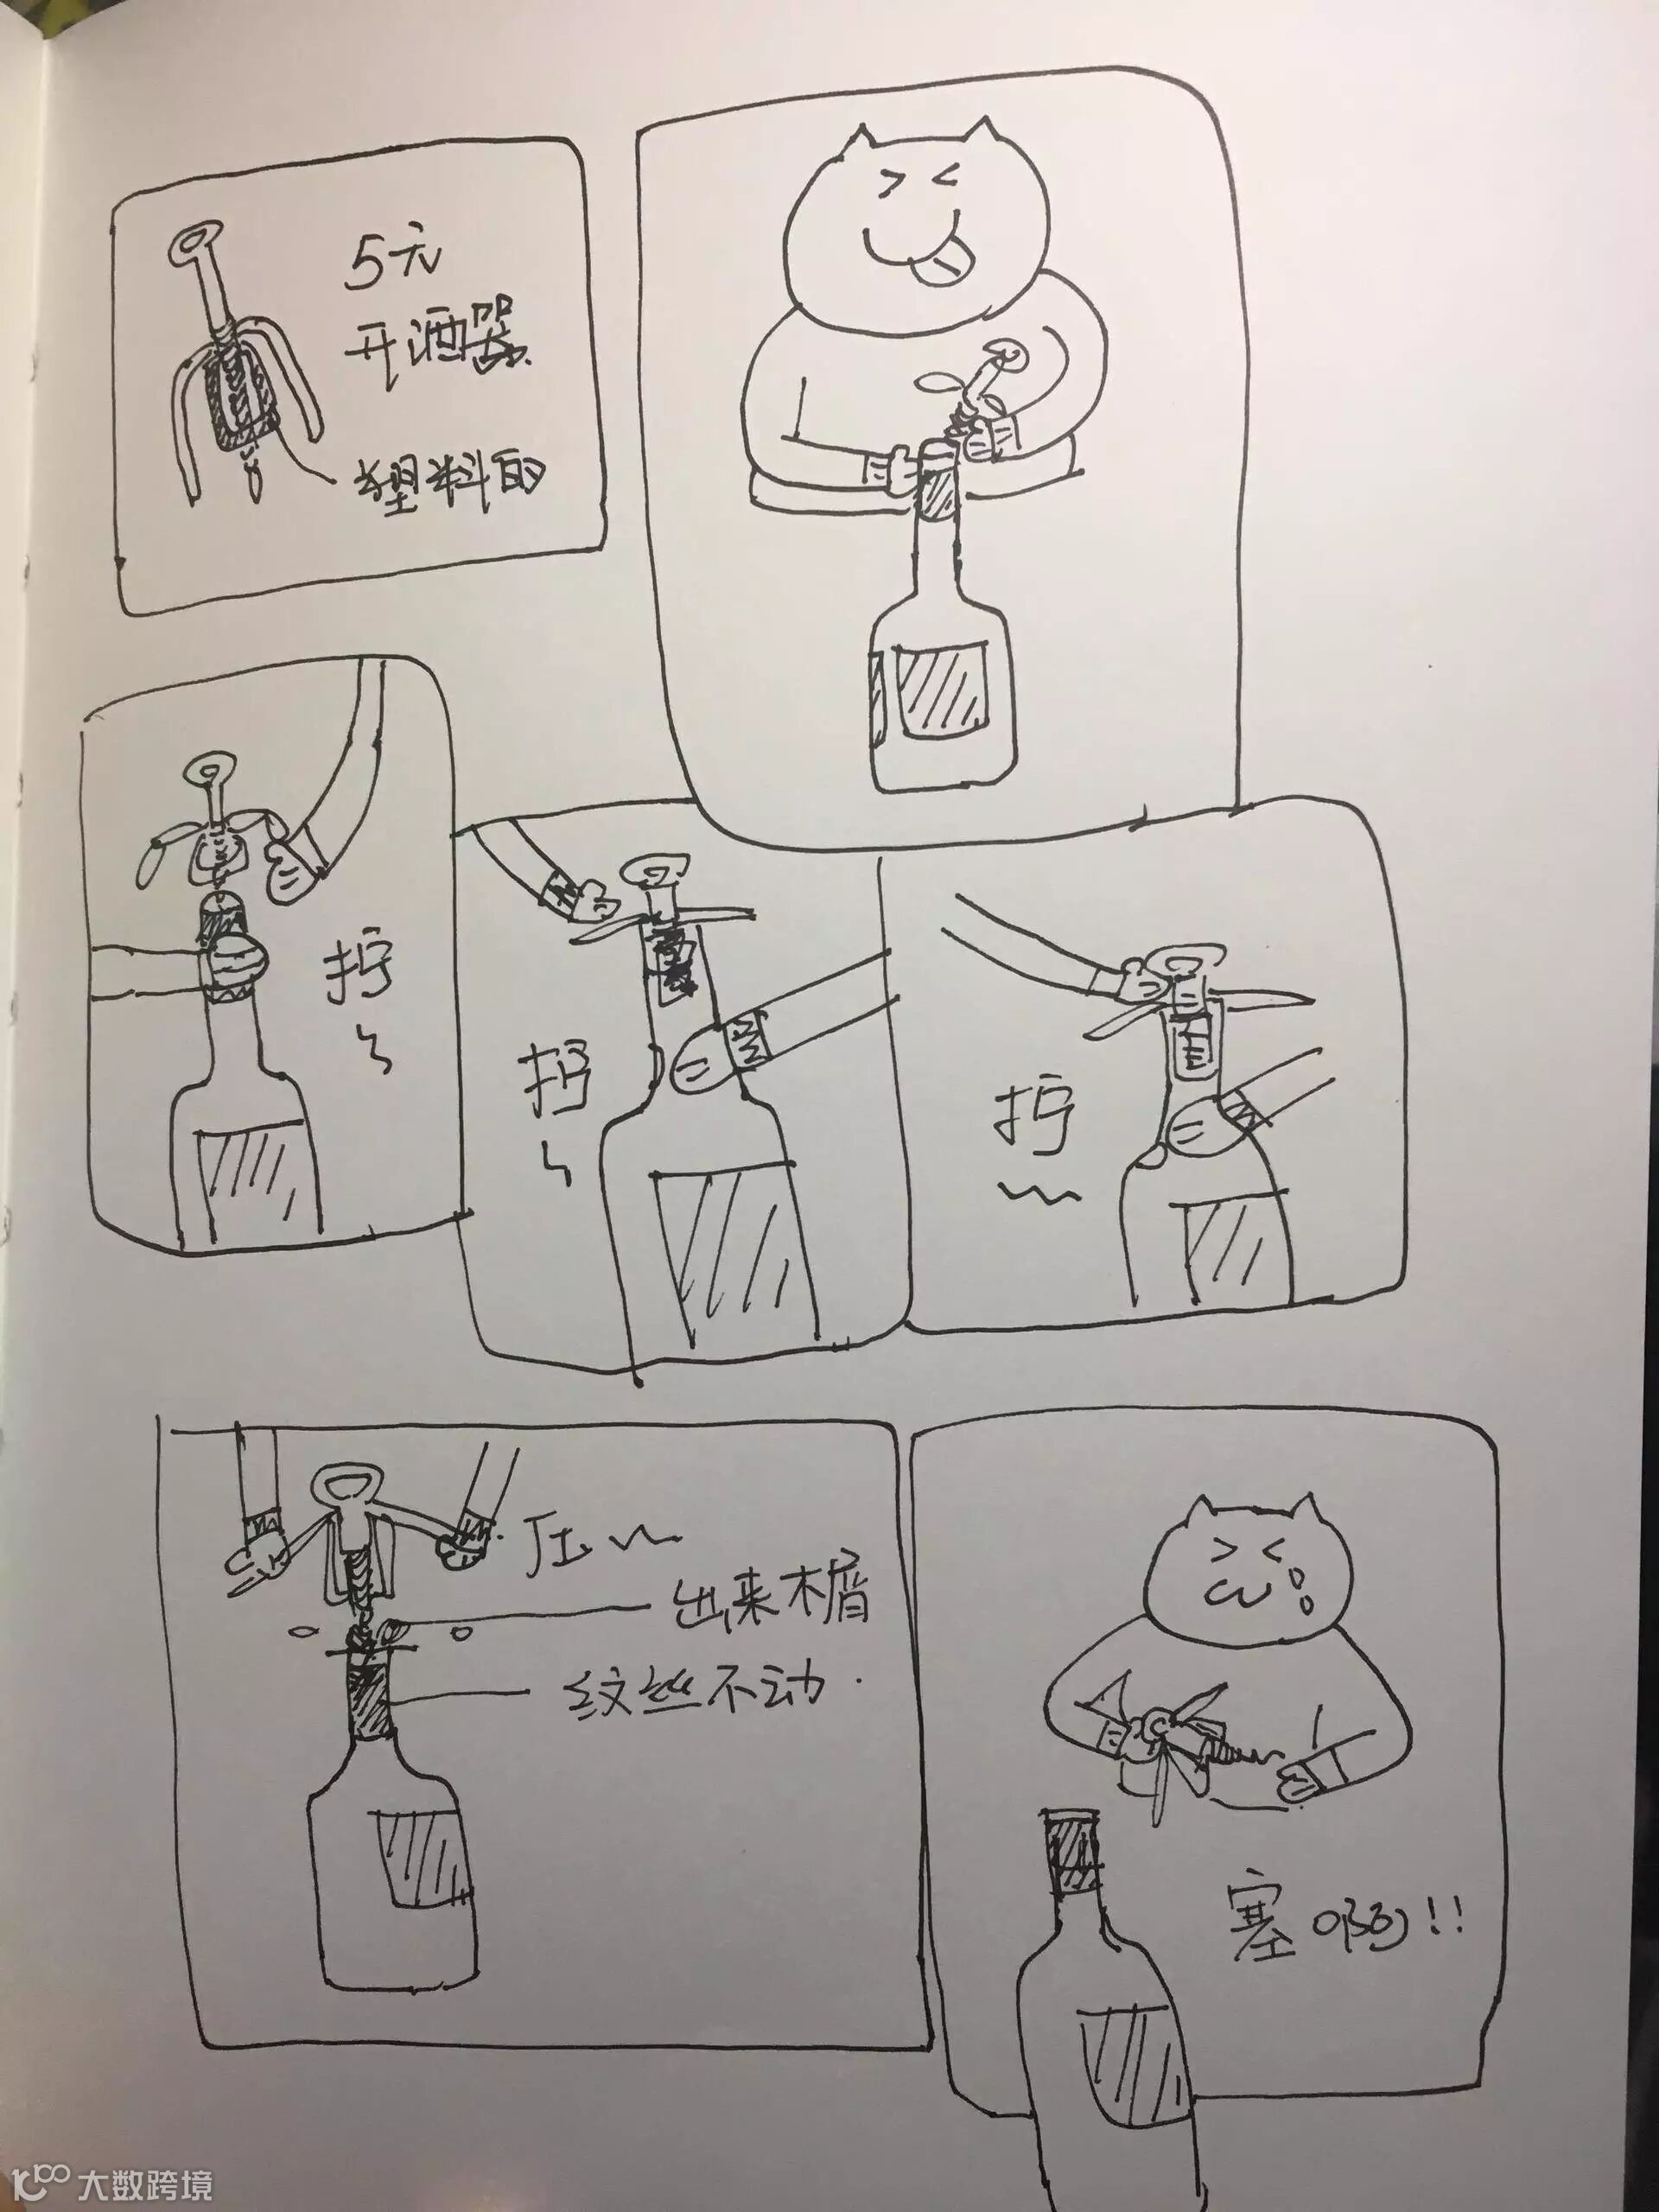 5元
开酒器
塑料的
拧
拧
拧
压
出来木屑
纹丝不动.
塞啊!!
大数跨境